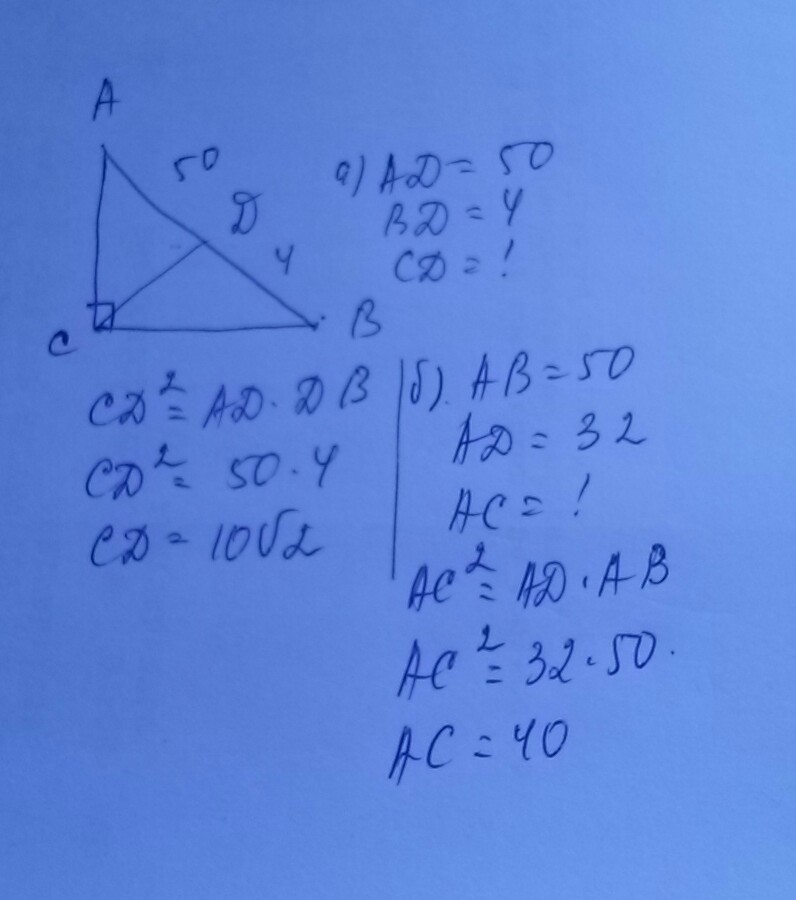 A
50
D
4
C
B
а) AD = 50
BD = 4
CD = !
CD² = AD · DB
CD² = 50 · 4
CD = 10√2
б). AB = 50
AD = 32
AC = !
AC² = AD · AB
AC² = 32 · 50.
AC = 40